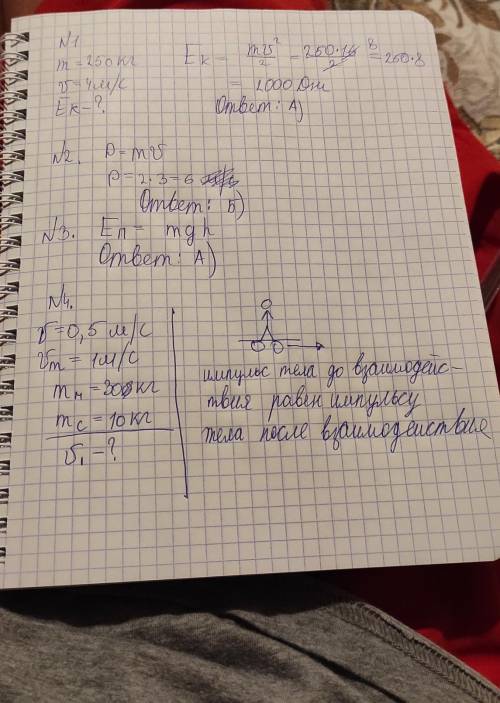 №1
m = 250 кг
v = 4 м/с
Eк - ?
Eк = mv²/2 = 250·16/2 8 = 250·8
= 2000 Дж
Ответ: А)
№2. p = mv
p = 2·3 = 6
Ответ: Б)
№3. Eп = mgh
Ответ: А)
№4.
v = 0,5 м/с
vт = 1 м/с
mс = 10 кг
v₁ - ?
импульс тела до взаимодейс-
твия равен импульсу
тела после взаимодействие